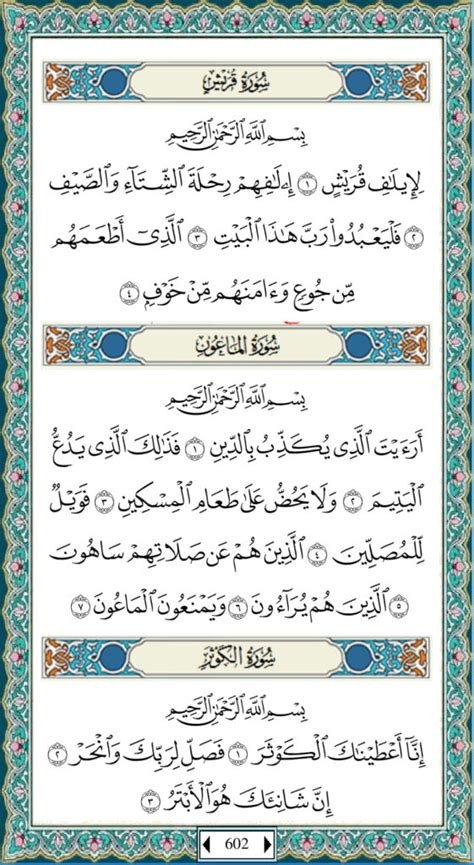 سُورَةُ قُرَيْشٍ
بِسْمِ اللَّهِ الرَّحْمَٰنِ الرَّحِيمِ
لِإِيلَافِ قُرَيْشٍ ١ إِۦلَافِهِمْ رِحْلَةَ الشِّتَاءِ وَالصَّيْفِ
٢ فَلْيَعْبُدُوا رَبَّ هَٰذَا الْبَيْتِ ٣ الَّذِي أَطْعَمَهُم
مِّن جُوعٍ وَءَامَنَهُم مِّنْ خَوْفٍ ٤
سُورَةُ الْمَاعُونِ
بِسْمِ اللَّهِ الرَّحْمَٰنِ الرَّحِيمِ
أَرَءَيْتَ الَّذِي يُكَذِّبُ بِالدِّينِ ١ فَذَٰلِكَ الَّذِي يَدُعُّ
الْيَتِيمَ ٢ وَلَا يَحُضُّ عَلَىٰ طَعَامِ الْمِسْكِينِ ٣ فَوَيْلٌ
لِّلْمُصَلِّينَ ٤ الَّذِينَ هُمْ عَن صَلَاتِهِمْ سَاهُونَ
٥ الَّذِينَ هُمْ يُرَاءُونَ ٦ وَيَمْنَعُونَ الْمَاعُونَ ٧
سُورَةُ الْكَوْثَرِ
بِسْمِ اللَّهِ الرَّحْمَٰنِ الرَّحِيمِ
إِنَّا أَعْطَيْنَاكَ الْكَوْثَرَ ١ فَصَلِّ لِرَبِّكَ وَانْحَرْ ٢
إِنَّ شَانِئَكَ هُوَ الْأَبْتَرُ ٣
602